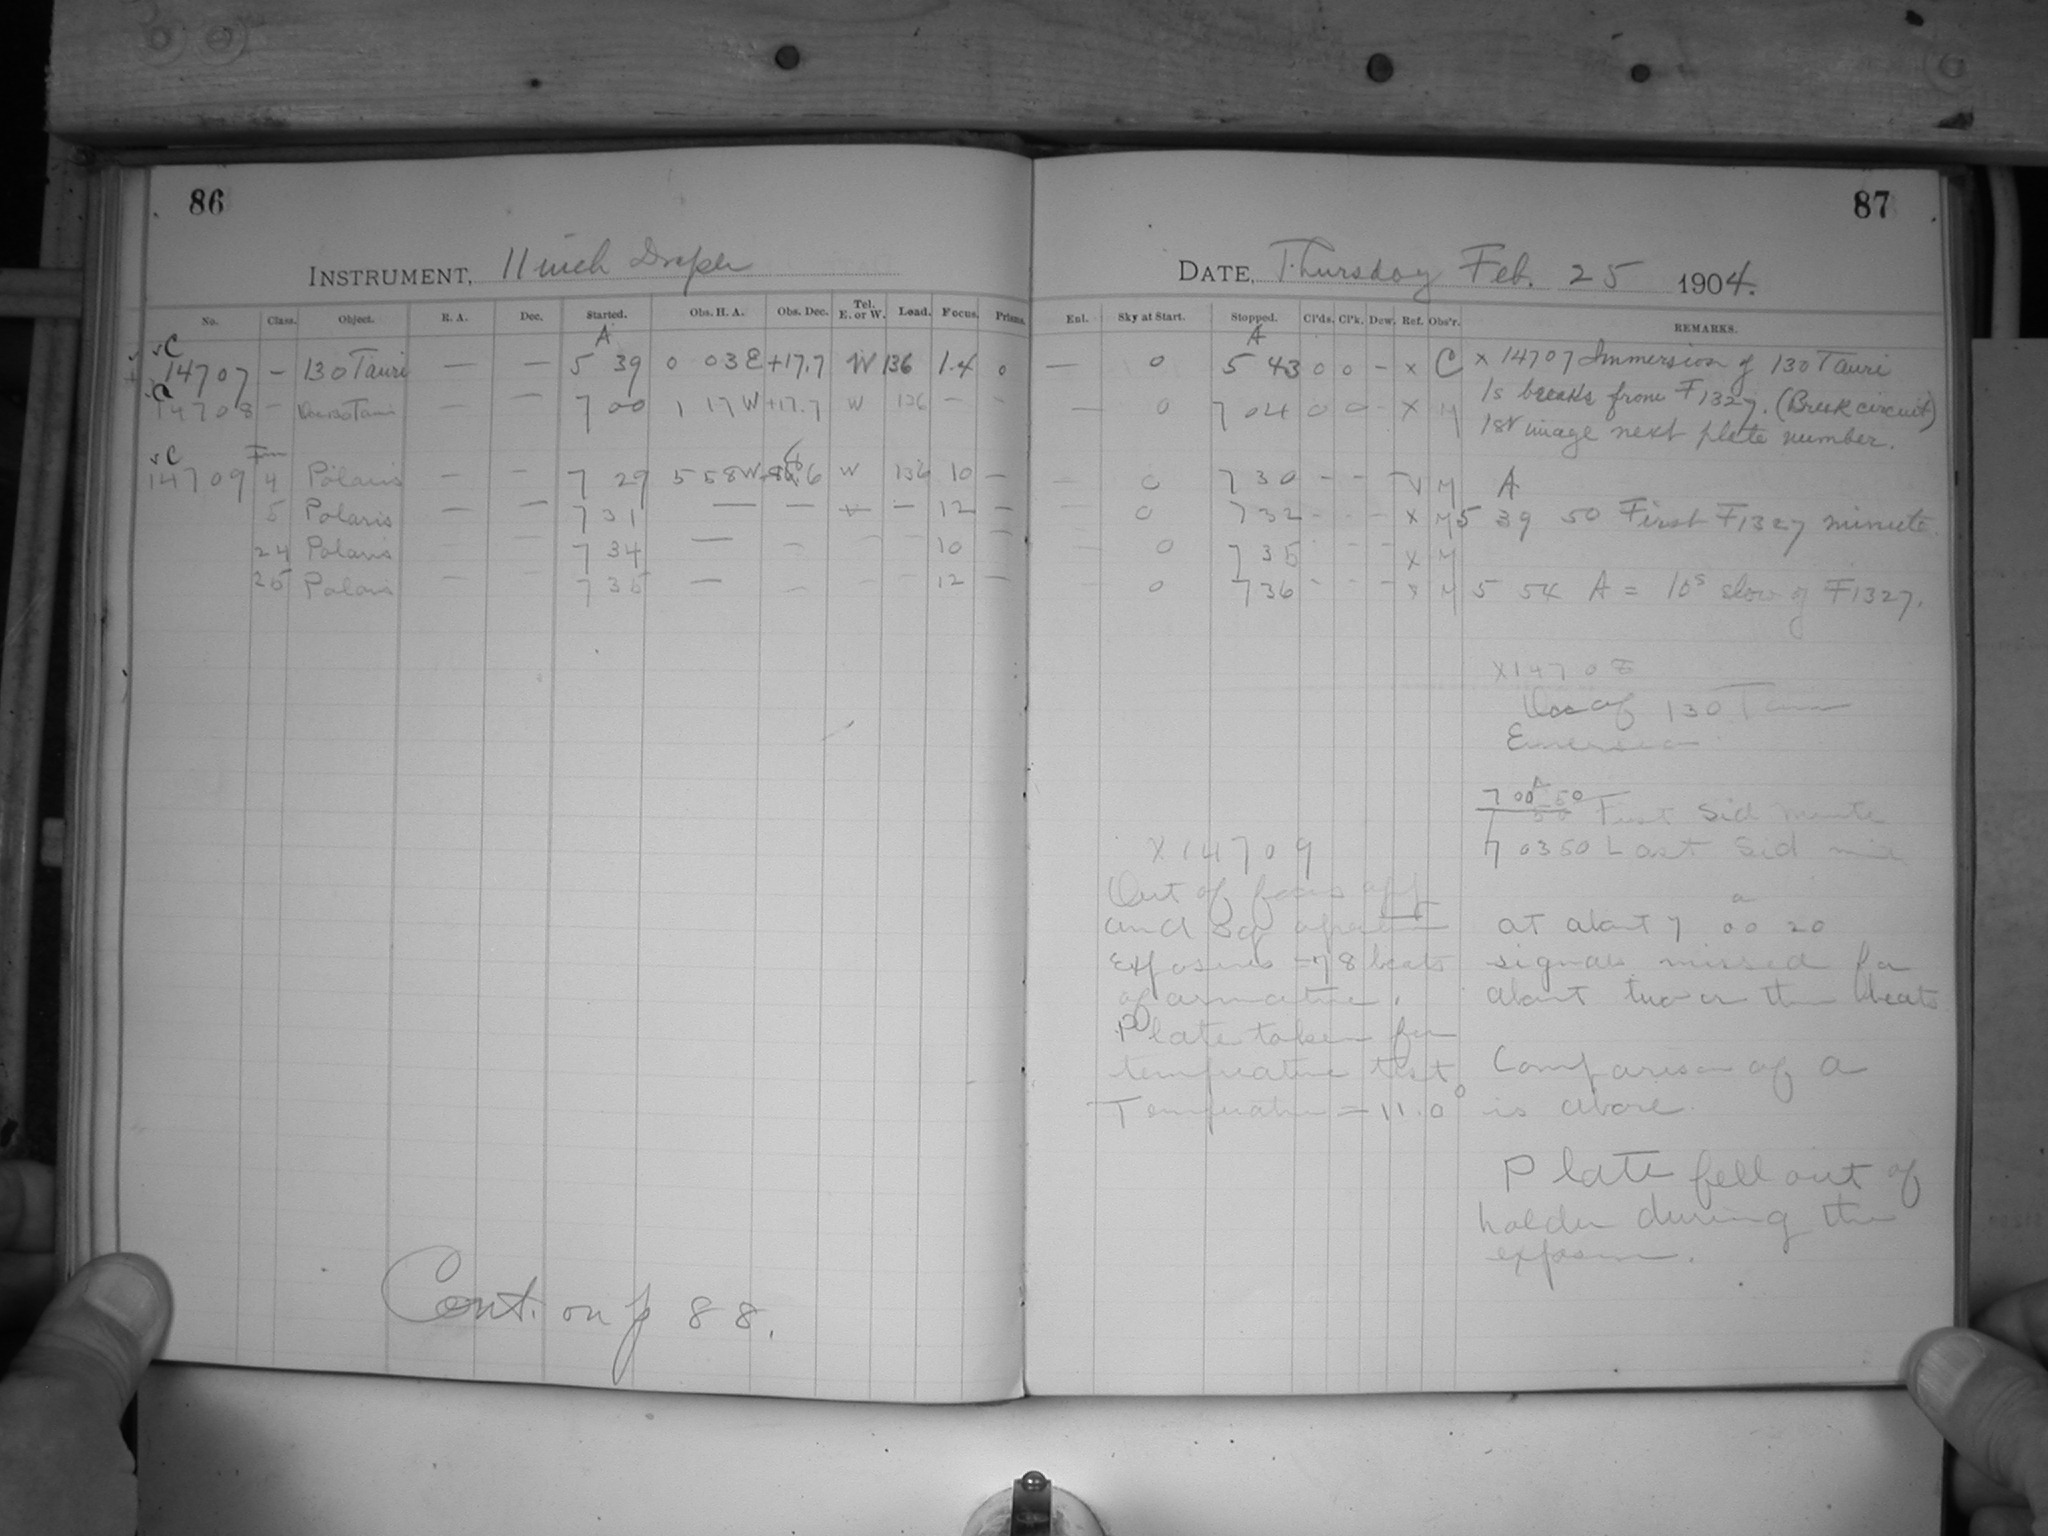 86
INSTRUMENT, 11 inch Draper
No. Class. Object. R. A. Dec. Started. Obs. H. A. Obs. Dec. Tel. E. or W. Load. Focus. Prisms.
A
C
14707 — 130 Tauri — — 5 39 0 03 E +17.7 W 136 1.4 0
C
14708 — — — 7 00 1 17 W +17.7 W 136 — —
C
14709 4 Polaris — — 7 29 5 58 W W 136 10 —
5 Polaris — — 7 31 — — — 12 —
24 Polaris — — 7 34 — — — — 10 —
25 Polaris — — 7 35 — — — — 12 —
Cont. on p 88.
87
DATE, Thursday Feb. 25 1904.
Enl. Sky at Start. Stopped. Cl'ds. Cl'k. Dew. Ref. Obs'r. REMARKS.
A
— 0 5 43 0 0 — x C x 14707 Immersion of 130 Tauri
1s breaks from F1327. (Break circuit)
— 0 7 04 0 0 - X M
1st image next plate number.
— 0 7 30 - - - M A
— 0 7 32 - - - X M 5 39 50 First F1327 minute.
— 0 7 35 - - - X M
0 7 36 - - - x M 5 54 A = 10s slow of F1327.
X14708
Occ of 130 Tauri
Emersion
A
7 00 50
First Sid minute
7 03 50 Last Sid min
X14709
Out of focus
and
Exposures 78 beats
of armature.
Plate taken for
temperature test
Temperature = 11.0°
a
at about 7 00 20
signals missed for
about two or three beats
Comparison of A
is above.
Plate fell out of
holder during the
exposure.